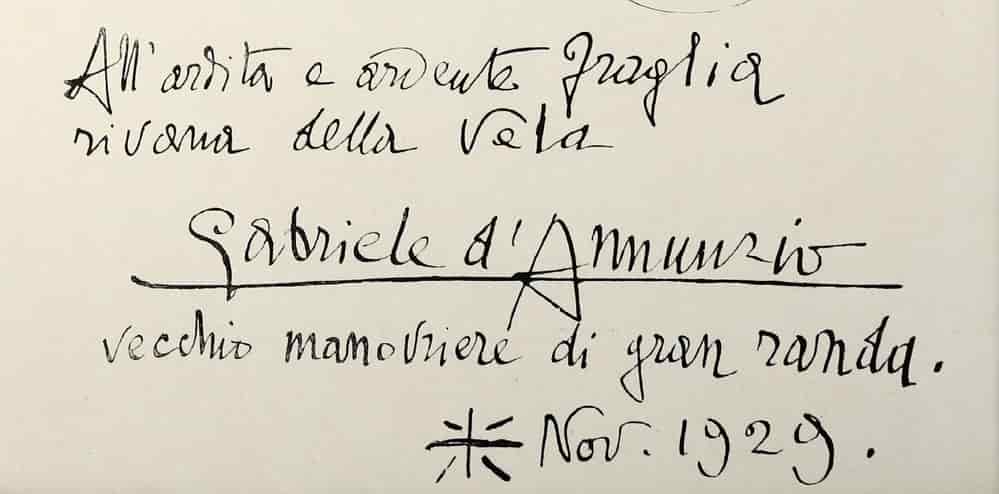 All'ardita e ardente Fraglia
rivana della Vela
Gabriele d'Annunzio
vecchio manovriere di gran randa.
Nov. 1929.